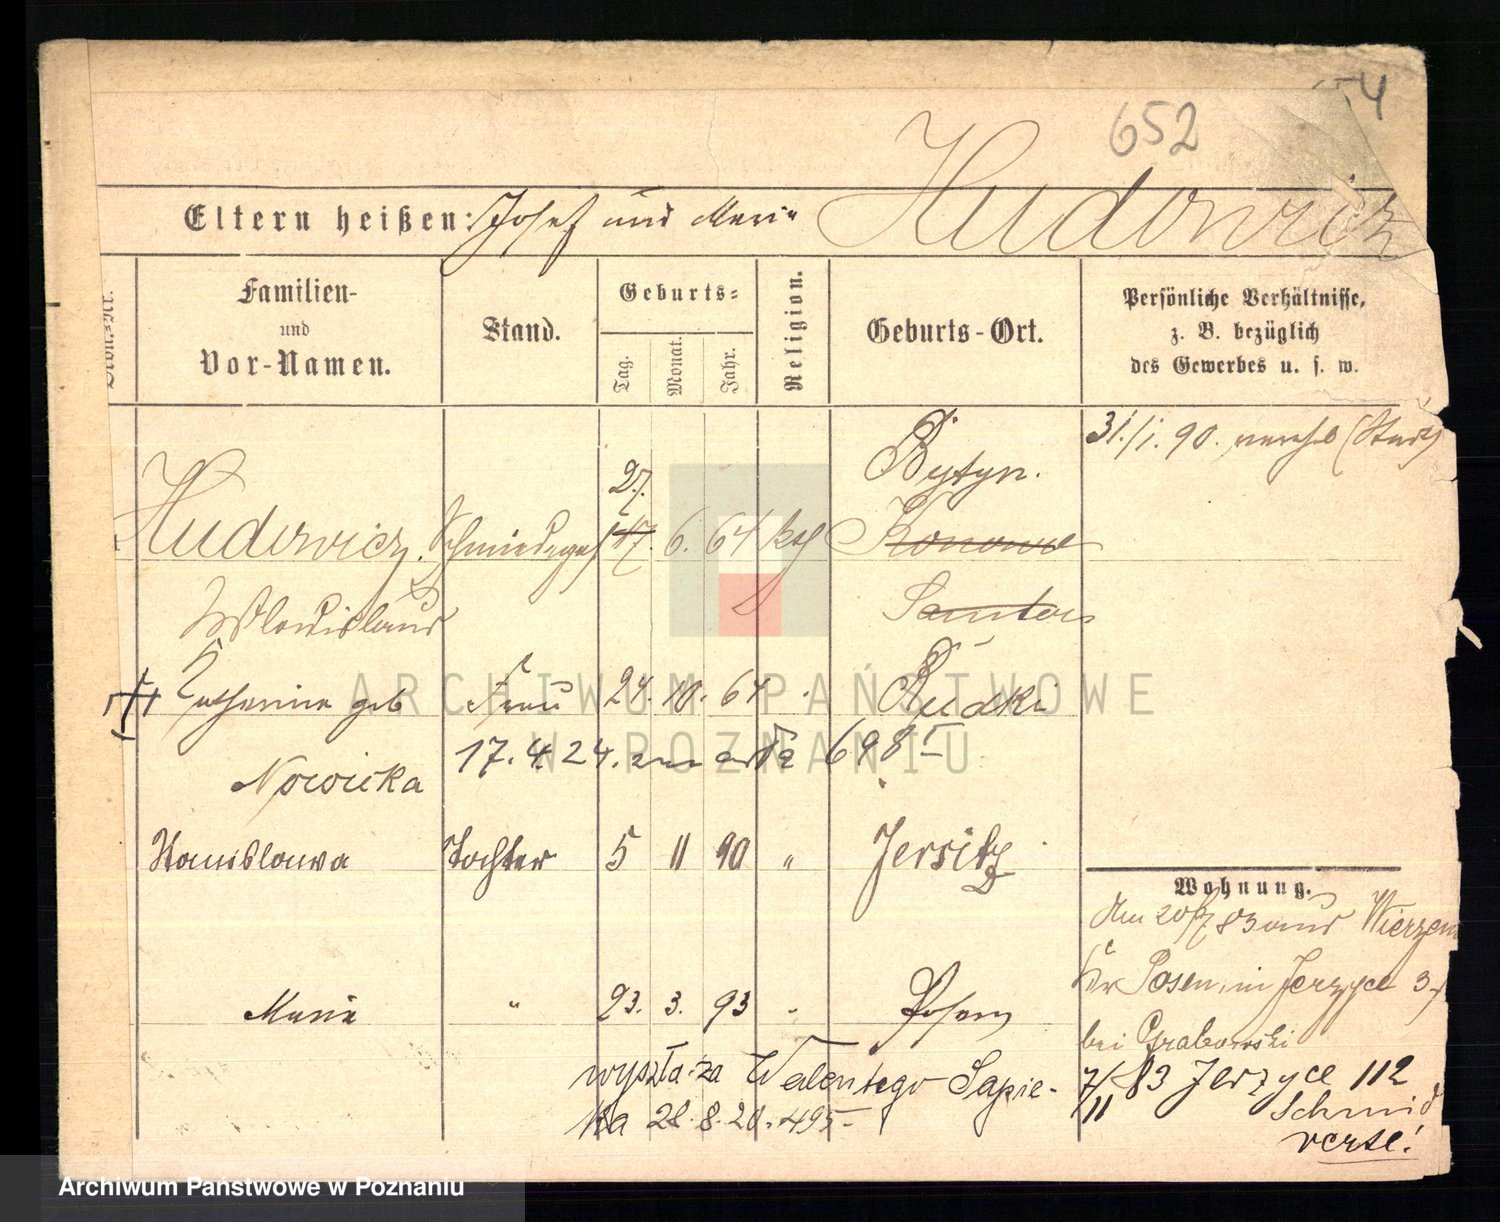 652
4
Eltern heißen: Josef und Marie Hudowicz
Kron.-Nr.
Familien-
und
Vor-Namen.
Stand.
Geburts-
Tag.
Monat.
Jahr.
Religion.
Geburts-Ort.
Persönliche Verhältnisse,
z. B. bezüglich
des Gewerbes u. s. w.
31./1. 90.
27. Bytyn.
Hudowicz. Schmiedeges 17. 6. 64 kth Konowo
Wladislaus Samter
Katharina geb Frau 24. 10. 64 Rudki
17. 4. 24. 698
Nowicka
Stanislawa Tochter 5 11 90 " Jersitz
Wohnung.
Am 20/7 83 aus Wierzen
Kr Posen, in Jerzyce 3
Maria " 23. 3. 93 Posen
bei Grabowski
wyszła za Walentego Sapie-
ka 28. 8. 20. 495-
7/11 83 Jerzyce 112
Schmid
verte!
ARCHIWUM PAŃSTWOWE
W POZNANIU
Archiwum Państwowe w Poznaniu